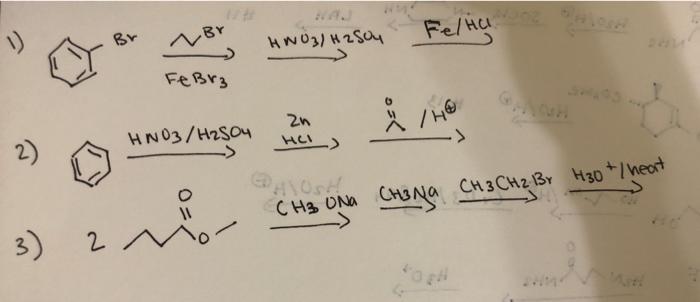 1) Br Br FeBr3 HNO3/H2SO4 Fe/HCl
2) HNO3/H2SO4 Zn HCl O /H⊕
3) 2 O O CH3ONa CH3Na CH3CH2Br H3O+/heat